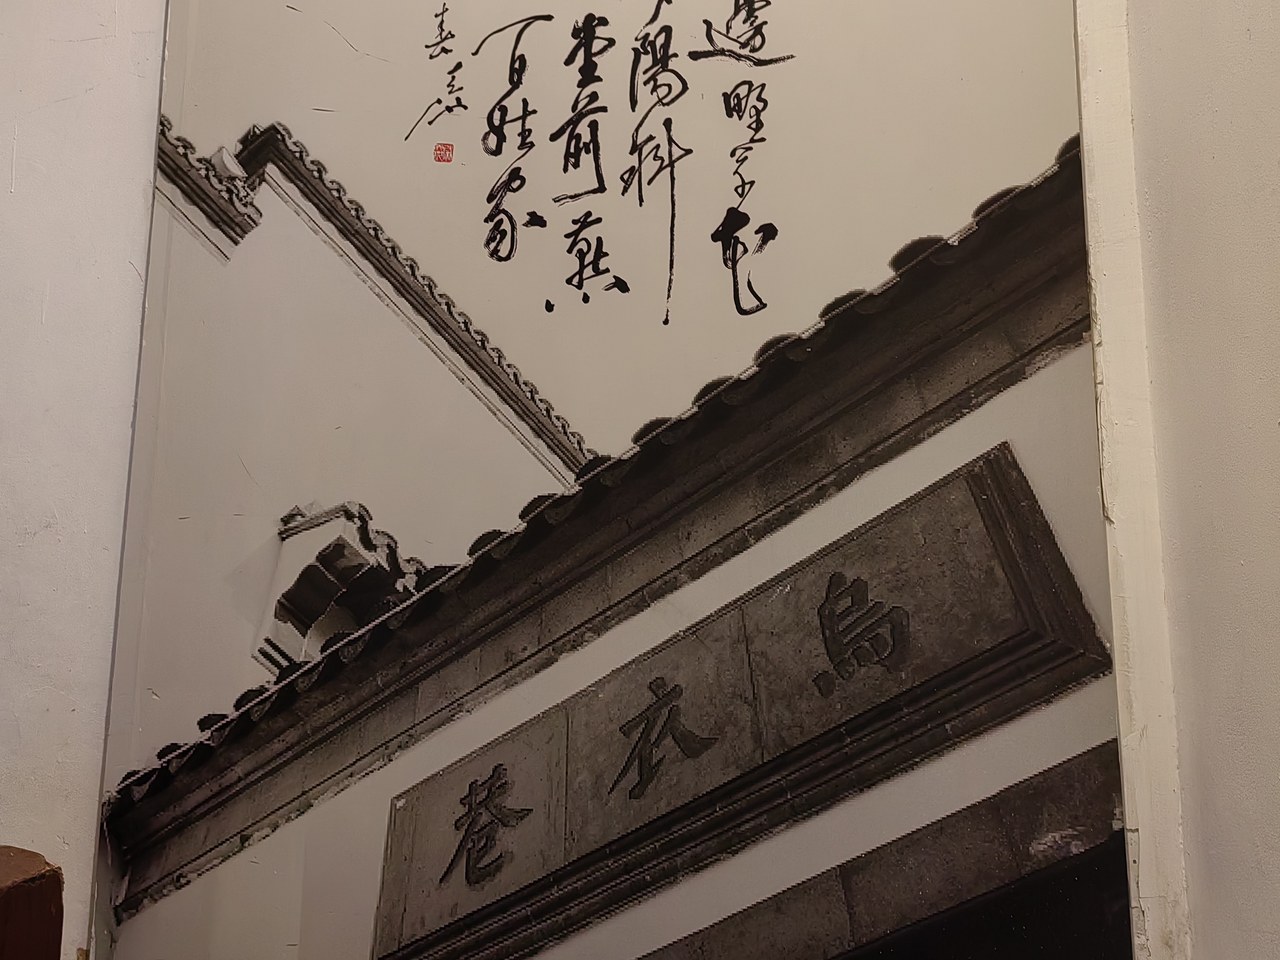 邊野草花
陽斜
堂前燕
百姓家
烏衣巷